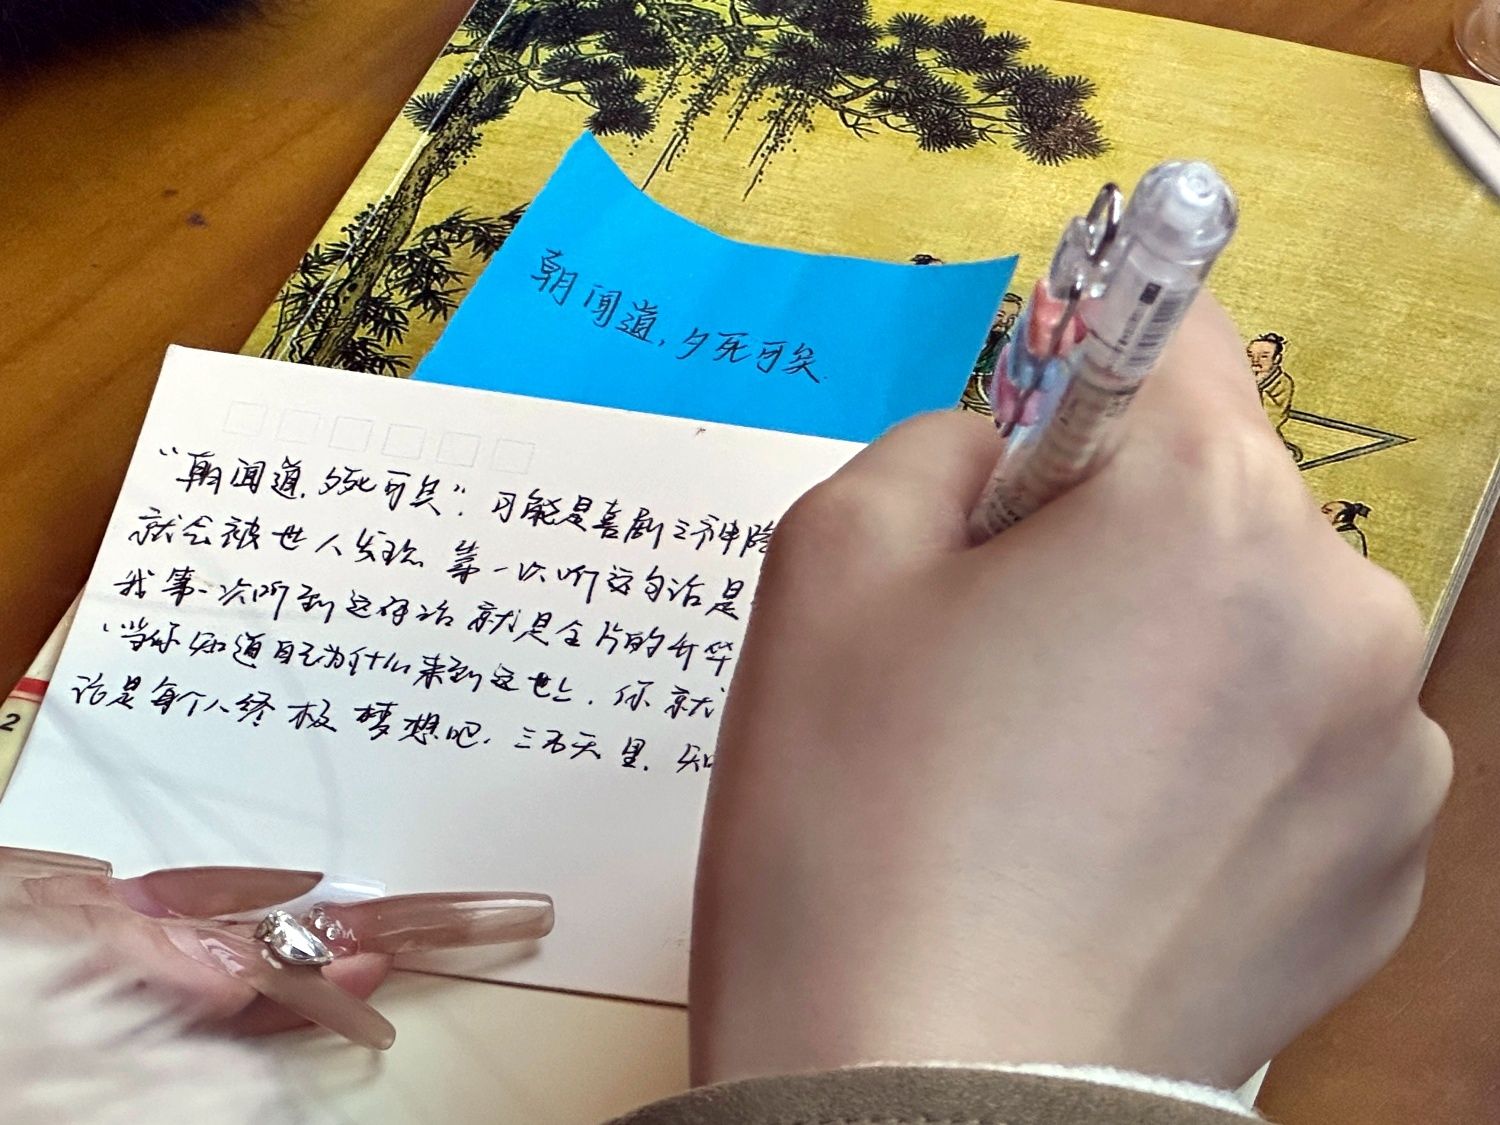 朝闻道,夕死可矣.
"朝闻道,夕死可矣".可能是喜剧之神降
就会被世人发现 第一次听这句话是
我第一次听到这句话就是全片的升华
"当你知道自己为什么来到这世上.你就
话是每个人终极梦想吧.三万天里.知
2